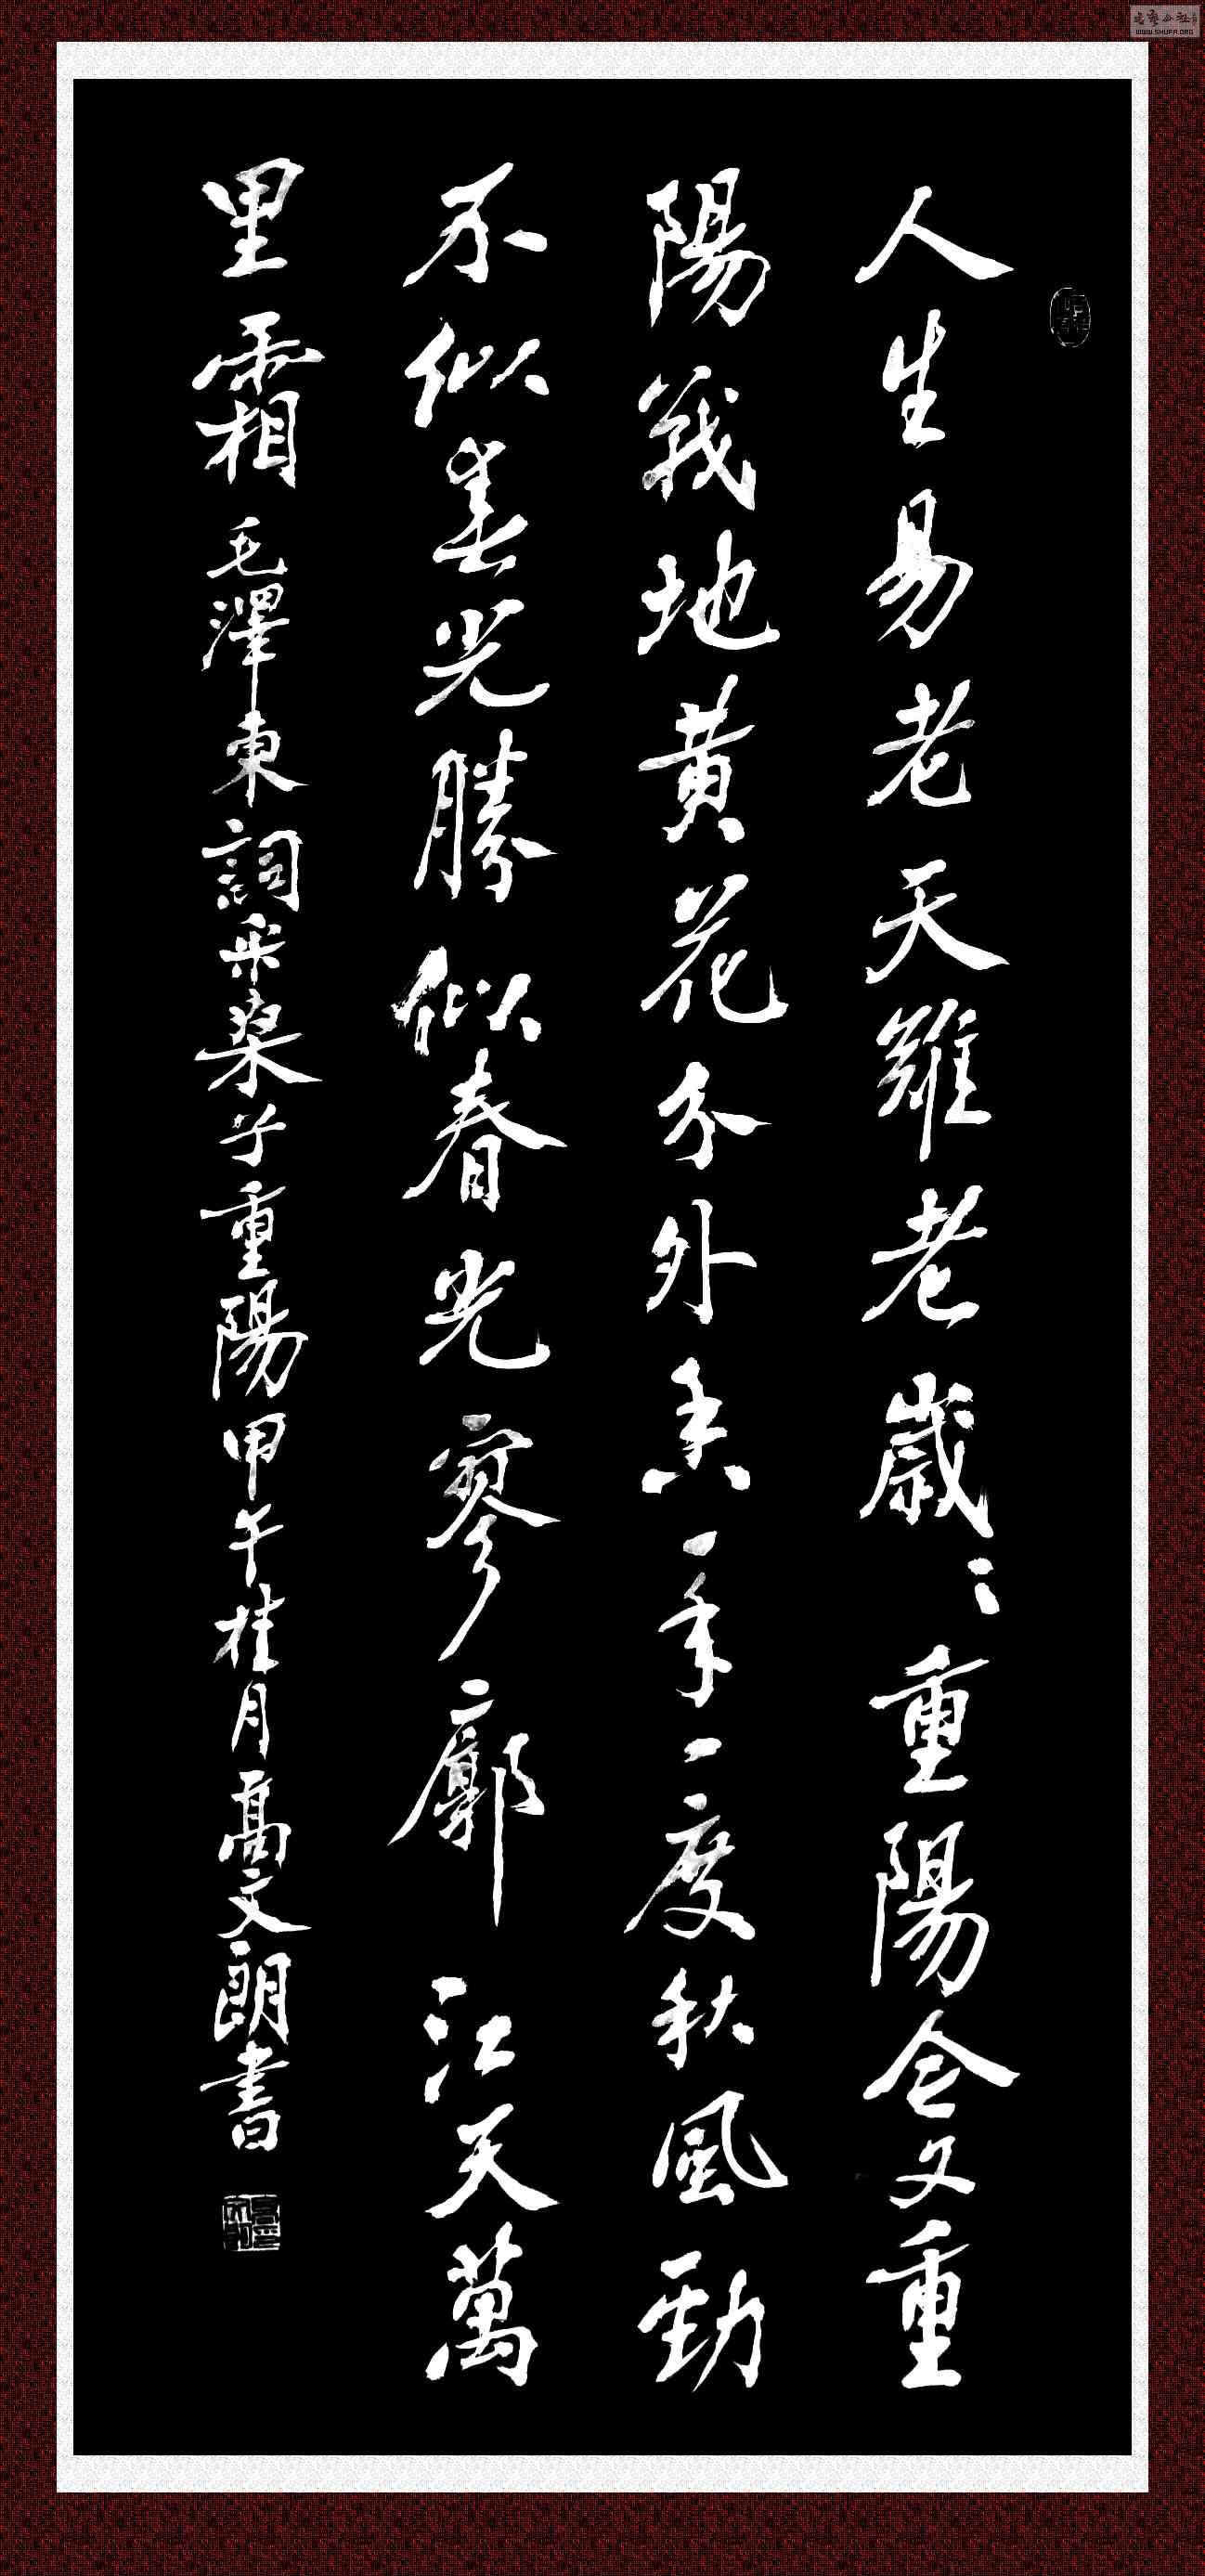 人生易老天難老歲〻重陽今又重
陽戰地黃花分外香一年一度秋風勁
不似春光勝似春光寥廓江天萬
里霜 毛澤東詞采桑子重陽甲午桂月高文朗書
WWW.SHUFA.ORG